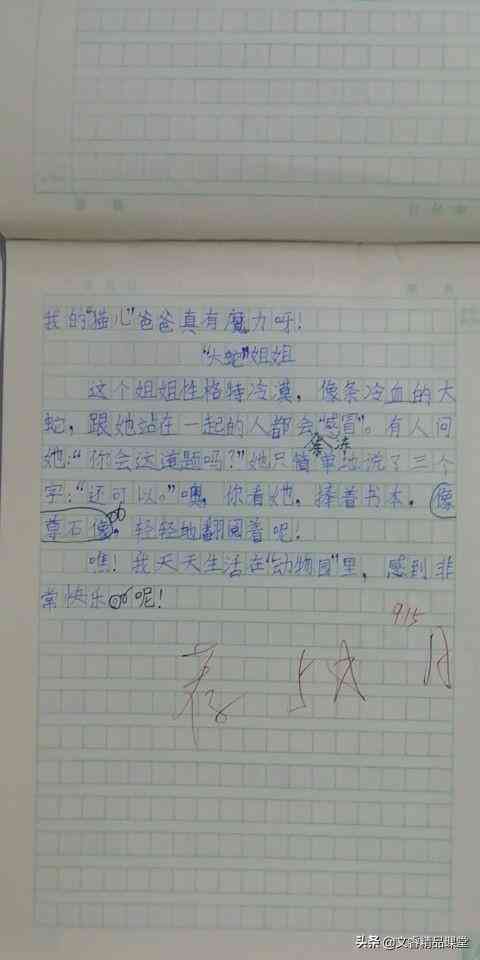 我的“猫儿”爸爸真有魔力呀!
“大蛇”姐姐
这个姐姐性格特冷漠,像条冷血的大
蛇,跟她站在一起的人都会“感冒”。有人问
她:“你会这道题吗?”她只简单地说了三个
字:“还可以。”噢,你看她,捧着书本,像
尊石像,轻轻地翻阅着呢!
瞧!我天天生活在“动物园”里,感到非
常快乐呢!
915
头条@文睿精品课堂